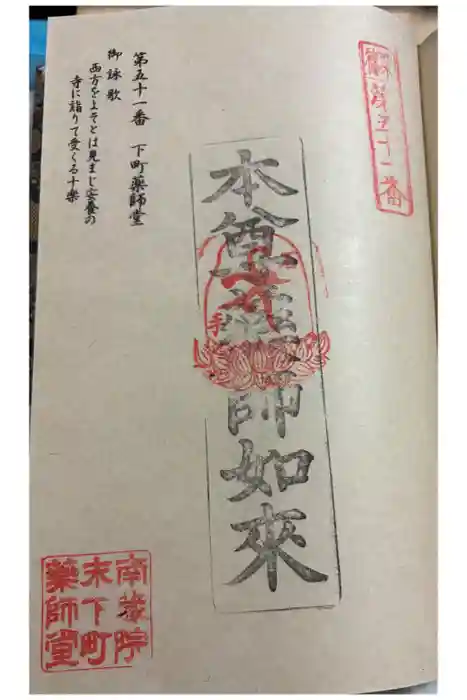 第五十一番　下町薬師堂
御詠歌
西方をよそとは見まじ安養の
寺に詣りて受くる十楽
第五十一番
本尊薬師如來
南蔵院
末下町
薬師堂